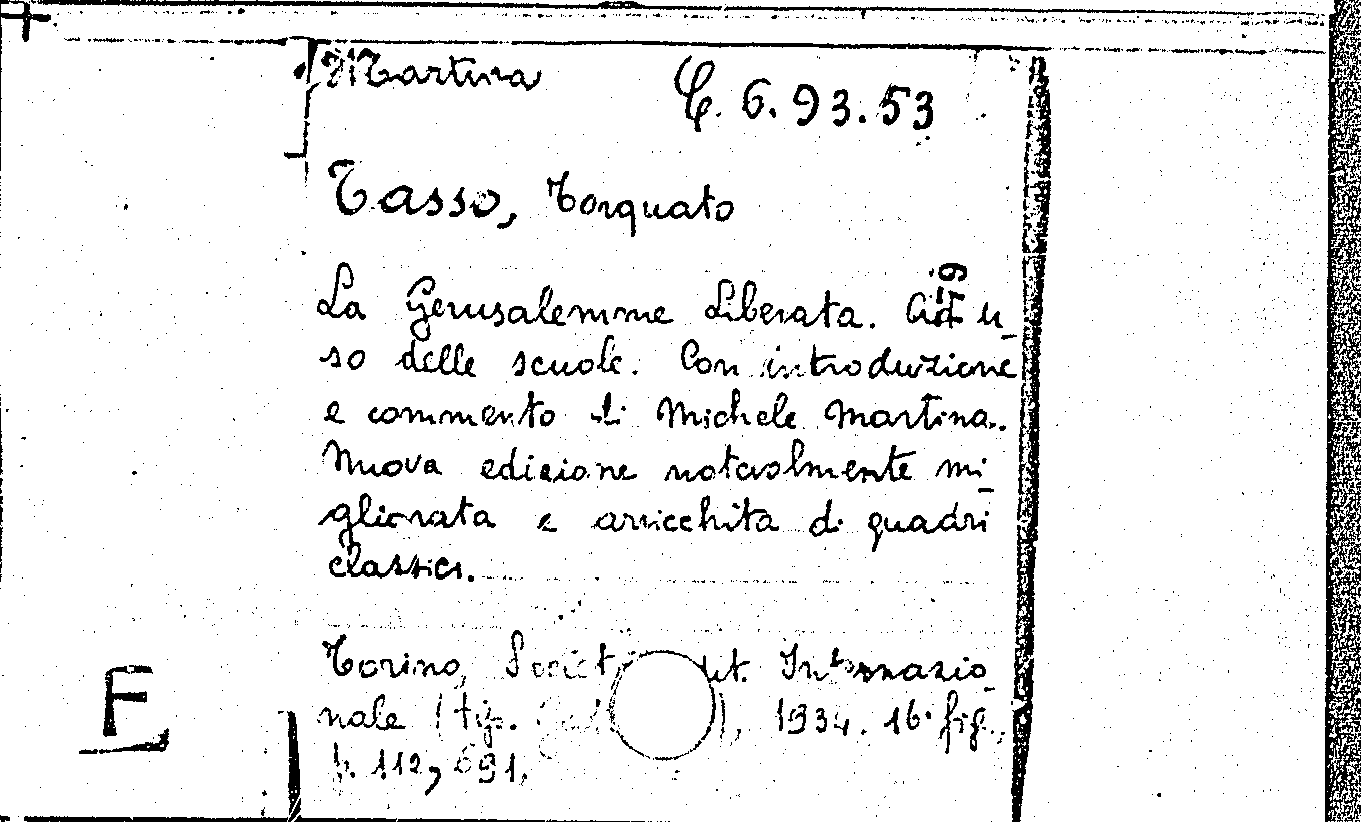 Martina C. 6.93.53
Tasso, Torquato
La Gerusalemme Liberata. Ad u-
so delle scuole. Con introduzione
e commento di Michele Martina.
Nuova edizione notevolmente mi-
gliorata e arricchita di quadri
classici.
Torino, Società Edit. Internazio-
nale (tip. ), 1934. 16° fig.,
p. 112, 691.
F